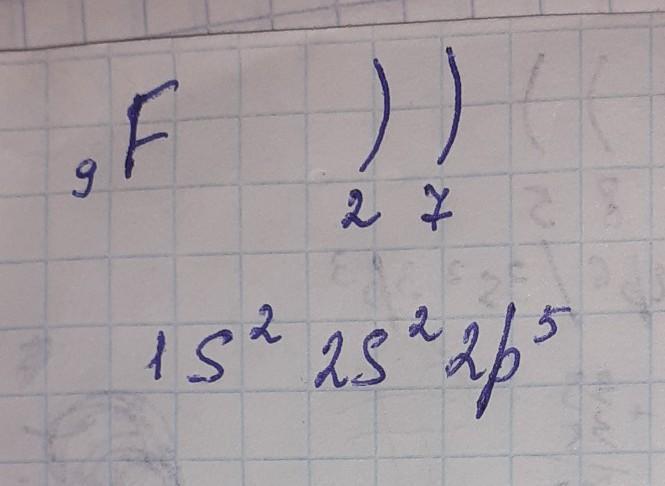 ₉F ) )
2 7
1s² 2s² 2p⁵